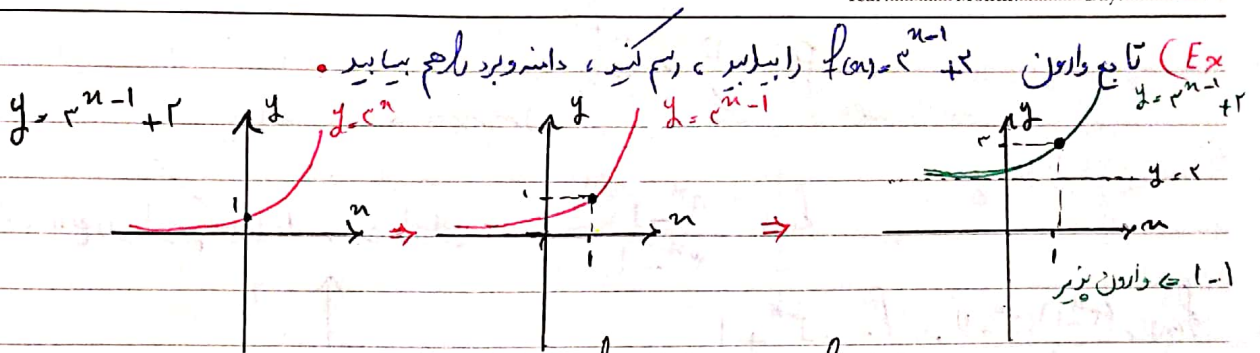 Ex) تابع وارون f(x)=۳^{x-1}+۲ را بیابید ، رسم کنید ، دامنه و برد را هم بیابید .
y=۳^{x-1}+۲
y
y=۳^x
۱
x
⇒
y
y=۳^{x-1}
۱
x
۱
⇒
y
y=۳^{x-1}+۲
۳
y=۲
x
۱
۱-۱ ⇒ وارون پذیر